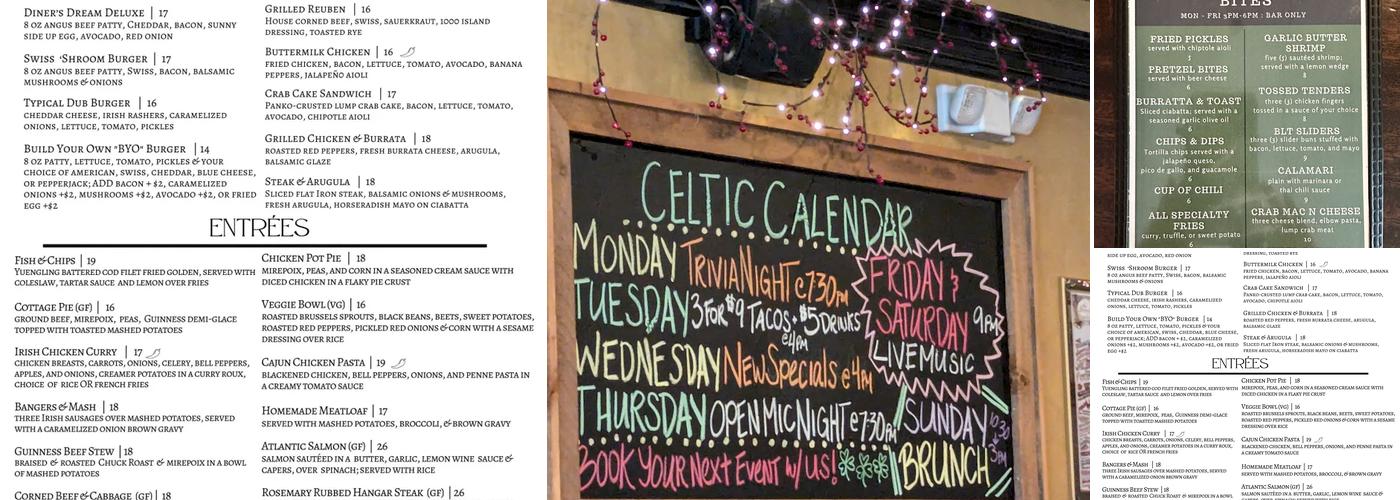 DINER'S DREAM DELUXE | 17
8 OZ ANGUS BEEF PATTY, CHEDDAR, BACON, SUNNY
SIDE UP EGG, AVOCADO, RED ONION
SWISS 'SHROOM BURGER | 17
8 OZ ANGUS BEEF PATTY, SWISS, BACON, BALSAMIC
MUSHROOMS & ONIONS
TYPICAL DUB BURGER | 16
CHEDDAR CHEESE, IRISH RASHERS, CARAMELIZED
ONIONS, LETTUCE, TOMATO, PICKLES
BUILD YOUR OWN "BYO" BURGER | 14
8 OZ PATTY, LETTUCE, TOMATO, PICKLES & YOUR
CHOICE OF AMERICAN, SWISS, CHEDDAR, BLUE CHEESE,
OR PEPPERJACK; ADD BACON + $2, CARAMELIZED
ONIONS +$2, MUSHROOMS +$2, AVOCADO +$2, OR FRIED
EGG +$2
GRILLED REUBEN | 16
HOUSE CORNED BEEF, SWISS, SAUERKRAUT, 1000 ISLAND
DRESSING, TOASTED RYE
BUTTERMILK CHICKEN | 16
FRIED CHICKEN, BACON, LETTUCE, TOMATO, AVOCADO, BANANA
PEPPERS, JALAPEÑO AIOLI
CRAB CAKE SANDWICH | 17
PANKO-CRUSTED LUMP CRAB CAKE, BACON, LETTUCE, TOMATO,
AVOCADO, CHIPOTLE AIOLI
GRILLED CHICKEN & BURRATA | 18
ROASTED RED PEPPERS, FRESH BURRATA CHEESE, ARUGULA,
BALSAMIC GLAZE
STEAK & ARUGULA | 18
SLICED FLAT IRON STEAK, BALSAMIC ONIONS & MUSHROOMS,
FRESH ARUGULA, HORSERADISH MAYO ON CIABATTA
ENTRÉES
FISH & CHIPS | 19
YUENGLING BATTERED COD FILET FRIED GOLDEN, SERVED WITH
COLESLAW, TARTAR SAUCE AND LEMON OVER FRIES
COTTAGE PIE (GF) | 16
GROUND BEEF, MIREPOIX, PEAS, GUINNESS DEMI-GLACE
TOPPED WITH TOASTED MASHED POTATOES
IRISH CHICKEN CURRY | 17
CHICKEN BREASTS, CARROTS, ONIONS, CELERY, BELL PEPPERS,
APPLES, AND ONIONS, CREAMER POTATOES IN A CURRY ROUX,
CHOICE OF RICE OR FRENCH FRIES
BANGERS & MASH | 18
THREE IRISH SAUSAGES OVER MASHED POTATOES, SERVED
WITH A CARAMELIZED ONION BROWN GRAVY
GUINNESS BEEF STEW | 18
BRAISED & ROASTED CHUCK ROAST & MIREPOIX IN A BOWL
OF MASHED POTATOES
CORNED BEEF & CABBAGE (GF) | 18
CHICKEN POT PIE | 18
MIREPOIX, PEAS, AND CORN IN A SEASONED CREAM SAUCE WITH
DICED CHICKEN IN A FLAKY PIE CRUST
VEGGIE BOWL (VG) | 16
ROASTED BRUSSELS SPROUTS, BLACK BEANS, BEETS, SWEET POTATOES,
ROASTED RED PEPPERS, PICKLED RED ONIONS & CORN WITH A SESAME
DRESSING OVER RICE
CAJUN CHICKEN PASTA | 19
BLACKENED CHICKEN, BELL PEPPERS, ONIONS, AND PENNE PASTA IN
A CREAMY TOMATO SAUCE
HOMEMADE MEATLOAF | 17
SERVED WITH MASHED POTATOES, BROCCOLI, & BROWN GRAVY
ATLANTIC SALMON (GF) | 26
SALMON SAUTÉED IN A BUTTER, GARLIC, LEMON WINE SAUCE &
CAPERS, OVER SPINACH; SERVED WITH RICE
ROSEMARY RUBBED HANGAR STEAK (GF) | 26
CELTIC CALENDAR
MONDAY TRIVIA NIGHT @ 730PM
TUESDAY 3 FOR $9 TACOS + $5 DRINKS
@ 4PM
WEDNESDAY NEW SPECIALS @ 4PM
THURSDAY OPEN MIC NIGHT @ 730PM
BOOK YOUR NEXT EVENT W/ US!
FRIDAY &
SATURDAY 9PM
LIVE MUSIC
SUNDAY
BRUNCH
BITES
MON - FRI 3PM-6PM : BAR ONLY
FRIED PICKLES
served with chiptole aioli
3
PRETZEL BITES
served with beer cheese
6
BURRATTA & TOAST
Sliced ciabatta; served with a
seasoned garlic olive oil
6
CHIPS & DIPS
Tortilla chips served with a
jalapeño queso,
pico de gallo, and guacamole
6
CUP OF CHILI
6
ALL SPECIALTY
FRIES
curry, truffle, or sweet potato
6
GARLIC BUTTER
SHRIMP
five (5) sautéed shrimp;
served with a lemon wedge
8
TOSSED TENDERS
three (3) chicken fingers
tossed in a sauce of your choice
8
BLT SLIDERS
three (3) slider buns stuffed with
bacon, lettuce, tomato, and mayo
9
CALAMARI
plain with marinara or
thai chili sauce
9
CRAB MAC N CHEESE
three cheese blend, elbow pasta,
lump crab meat
10
SIDE UP EGG, AVOCADO, RED ONION
SWISS 'SHROOM BURGER | 17
8 OZ ANGUS BEEF PATTY, SWISS, BACON, BALSAMIC
MUSHROOMS & ONIONS
TYPICAL DUB BURGER | 16
CHEDDAR CHEESE, IRISH RASHERS, CARAMELIZED
ONIONS, LETTUCE, TOMATO, PICKLES
BUILD YOUR OWN "BYO" BURGER | 14
8 OZ PATTY, LETTUCE, TOMATO, PICKLES & YOUR
CHOICE OF AMERICAN, SWISS, CHEDDAR, BLUE CHEESE,
OR PEPPERJACK; ADD BACON + $2, CARAMELIZED
ONIONS +$2, MUSHROOMS +$2, AVOCADO +$2, OR FRIED
EGG +$2
DRESSING, TOASTED RYE
BUTTERMILK CHICKEN | 16
FRIED CHICKEN, BACON, LETTUCE, TOMATO, AVOCADO, BANANA
PEPPERS, JALAPEÑO AIOLI
CRAB CAKE SANDWICH | 17
PANKO-CRUSTED LUMP CRAB CAKE, BACON, LETTUCE, TOMATO,
AVOCADO, CHIPOTLE AIOLI
GRILLED CHICKEN & BURRATA | 18
ROASTED RED PEPPERS, FRESH BURRATA CHEESE, ARUGULA,
BALSAMIC GLAZE
STEAK & ARUGULA | 18
SLICED FLAT IRON STEAK, BALSAMIC ONIONS & MUSHROOMS,
FRESH ARUGULA, HORSERADISH MAYO ON CIABATTA
ENTRÉES
FISH & CHIPS | 19
YUENGLING BATTERED COD FILET FRIED GOLDEN, SERVED WITH
COLESLAW, TARTAR SAUCE AND LEMON OVER FRIES
COTTAGE PIE (GF) | 16
GROUND BEEF, MIREPOIX, PEAS, GUINNESS DEMI-GLACE
TOPPED WITH TOASTED MASHED POTATOES
IRISH CHICKEN CURRY | 17
CHICKEN BREASTS, CARROTS, ONIONS, CELERY, BELL PEPPERS,
APPLES, AND ONIONS, CREAMER POTATOES IN A CURRY ROUX,
CHOICE OF RICE OR FRENCH FRIES
BANGERS & MASH | 18
THREE IRISH SAUSAGES OVER MASHED POTATOES, SERVED
WITH A CARAMELIZED ONION BROWN GRAVY
GUINNESS BEEF STEW | 18
BRAISED & ROASTED CHUCK ROAST & MIREPOIX IN A BOWL
CHICKEN POT PIE | 18
MIREPOIX, PEAS, AND CORN IN A SEASONED CREAM SAUCE WITH
DICED CHICKEN IN A FLAKY PIE CRUST
VEGGIE BOWL (VG) | 16
ROASTED BRUSSELS SPROUTS, BLACK BEANS, BEETS, SWEET POTATOES,
ROASTED RED PEPPERS, PICKLED RED ONIONS & CORN WITH A SESAME
DRESSING OVER RICE
CAJUN CHICKEN PASTA | 19
BLACKENED CHICKEN, BELL PEPPERS, ONIONS, AND PENNE PASTA IN
A CREAMY TOMATO SAUCE
HOMEMADE MEATLOAF | 17
SERVED WITH MASHED POTATOES, BROCCOLI, & BROWN GRAVY
ATLANTIC SALMON (GF) | 26
SALMON SAUTÉED IN A BUTTER, GARLIC, LEMON WINE SAUCE &